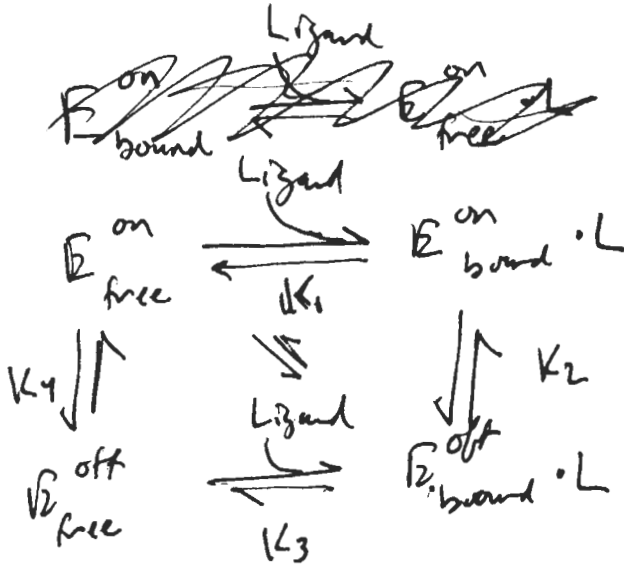 Ligand
E on bound E on free · L
Ligand
E on free E on bound · L
K1
K4 K2
Ligand
E off free E off bound · L
K3